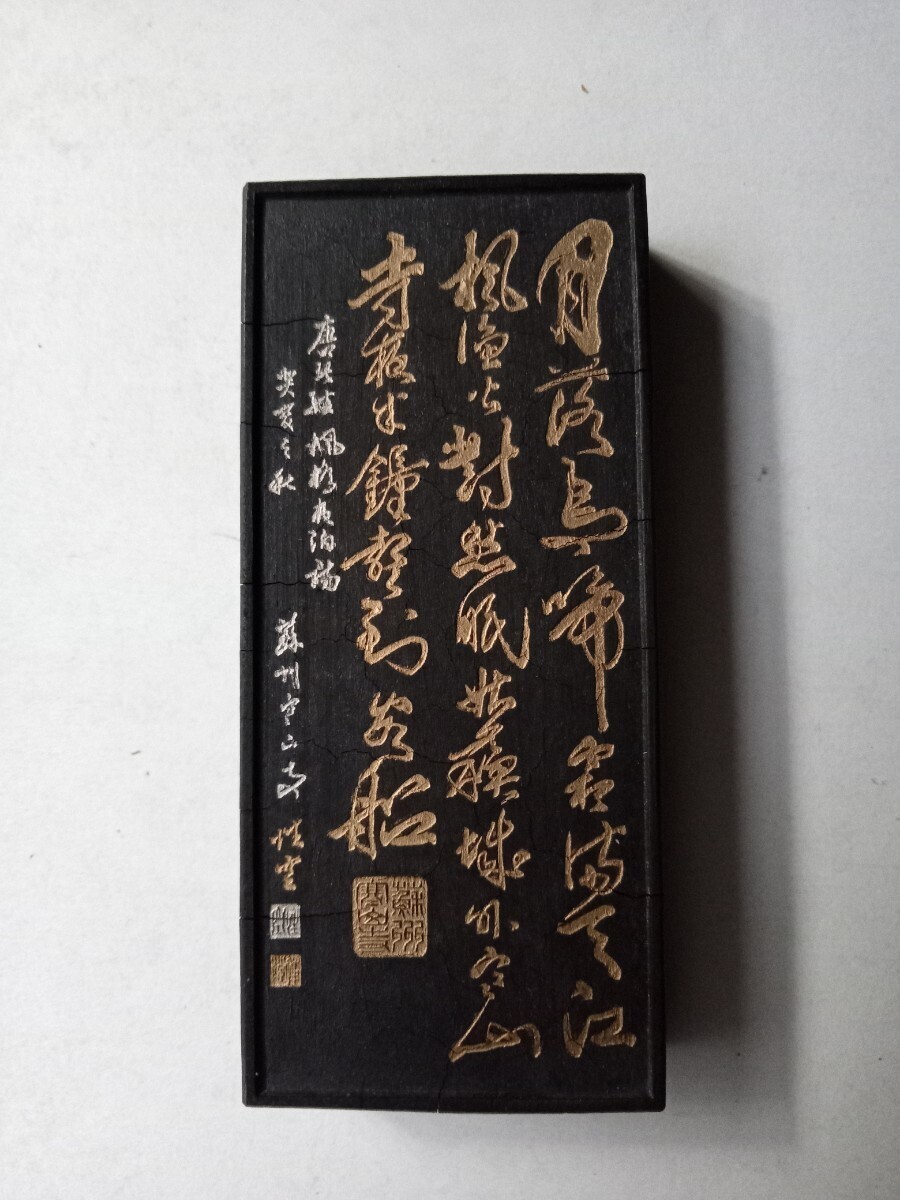 月落烏啼霜滿天江
楓漁火對愁眠姑蘇城外寒山
寺夜半鐘聲到客船
蘇州寒山寺
唐張繼楓橋夜泊詩
癸亥之秋 蘇州寒山寺 性空